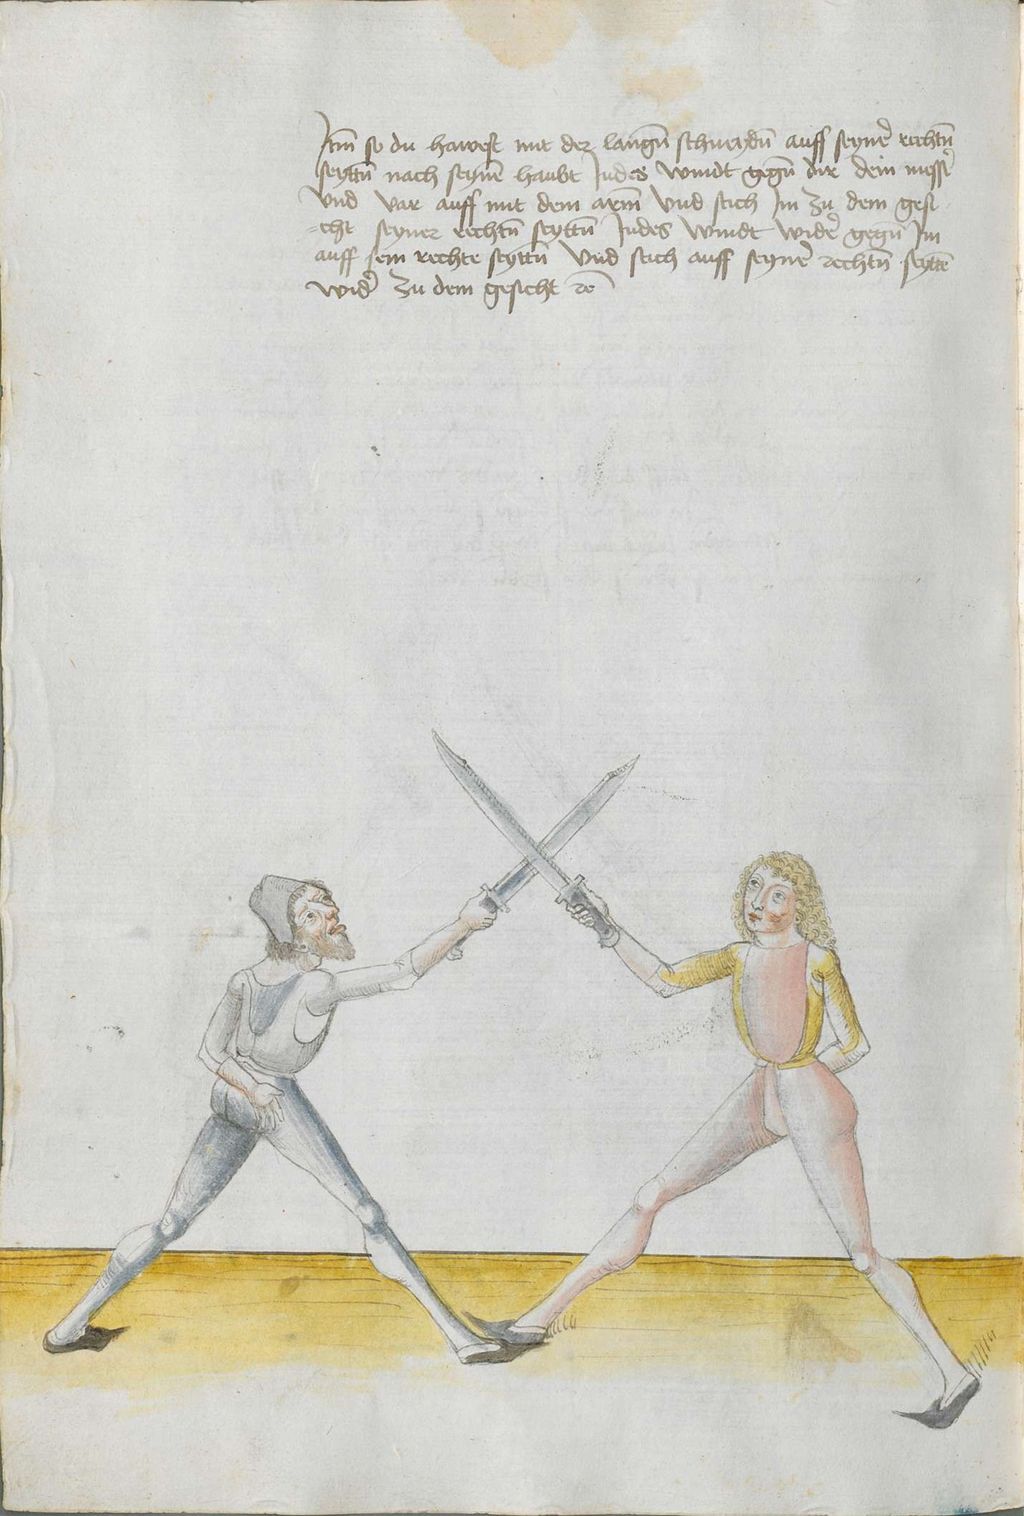 Itm̄ so du hawest mit der langn̄ schneydn̄ auff seyner̄ rechtn̄
seyttn̄ nach seynē haubt Indes windt gegn̄ dir dein messer̄
Und var auff mit dem arm̄ Und stich Im zu dem gesi
-cht seyner rechtn̄ seyttn̄ Indes windt wider̄ gegn̄ Im
auff sein rechte seyttn̄ Und stich auff seyner̄ rechtn̄ seyttē
wider̄ zu dem gesicht rc̄